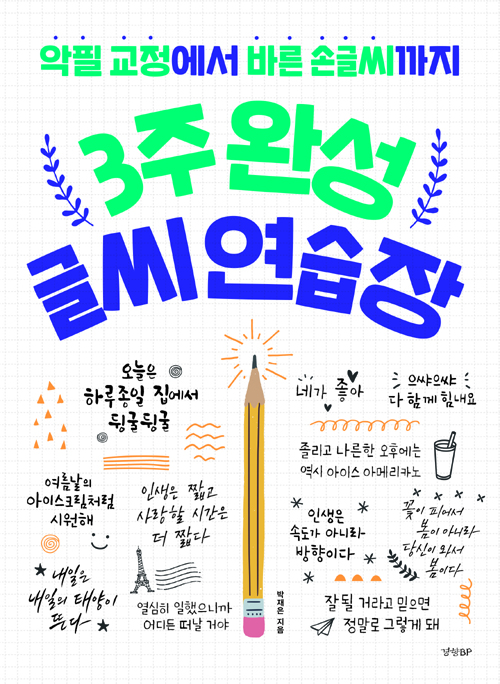 악필 교정에서 바른 손글씨까지
3주 완성
글씨 연습장
오늘은
하루종일 집에서
뒹굴뒹굴
네가 좋아
으쌰으쌰
다 함께 힘내요
졸리고 나른한 오후에는
역시 아이스 아메리카노
여름날의
아이스크림처럼
시원해
인생은 짧고
사랑할 시간은
더 짧다
인생은
속도가 아니라
방향이다
꽃이 피어서
봄이 아니라
당신이 와서
봄이다
내일은
내일의 태양이
뜬다
열심히 일했으니까
어디든 떠날 거야
박재은 지음
잘 될 거라고 믿으면
정말로 그렇게 돼
경향BP